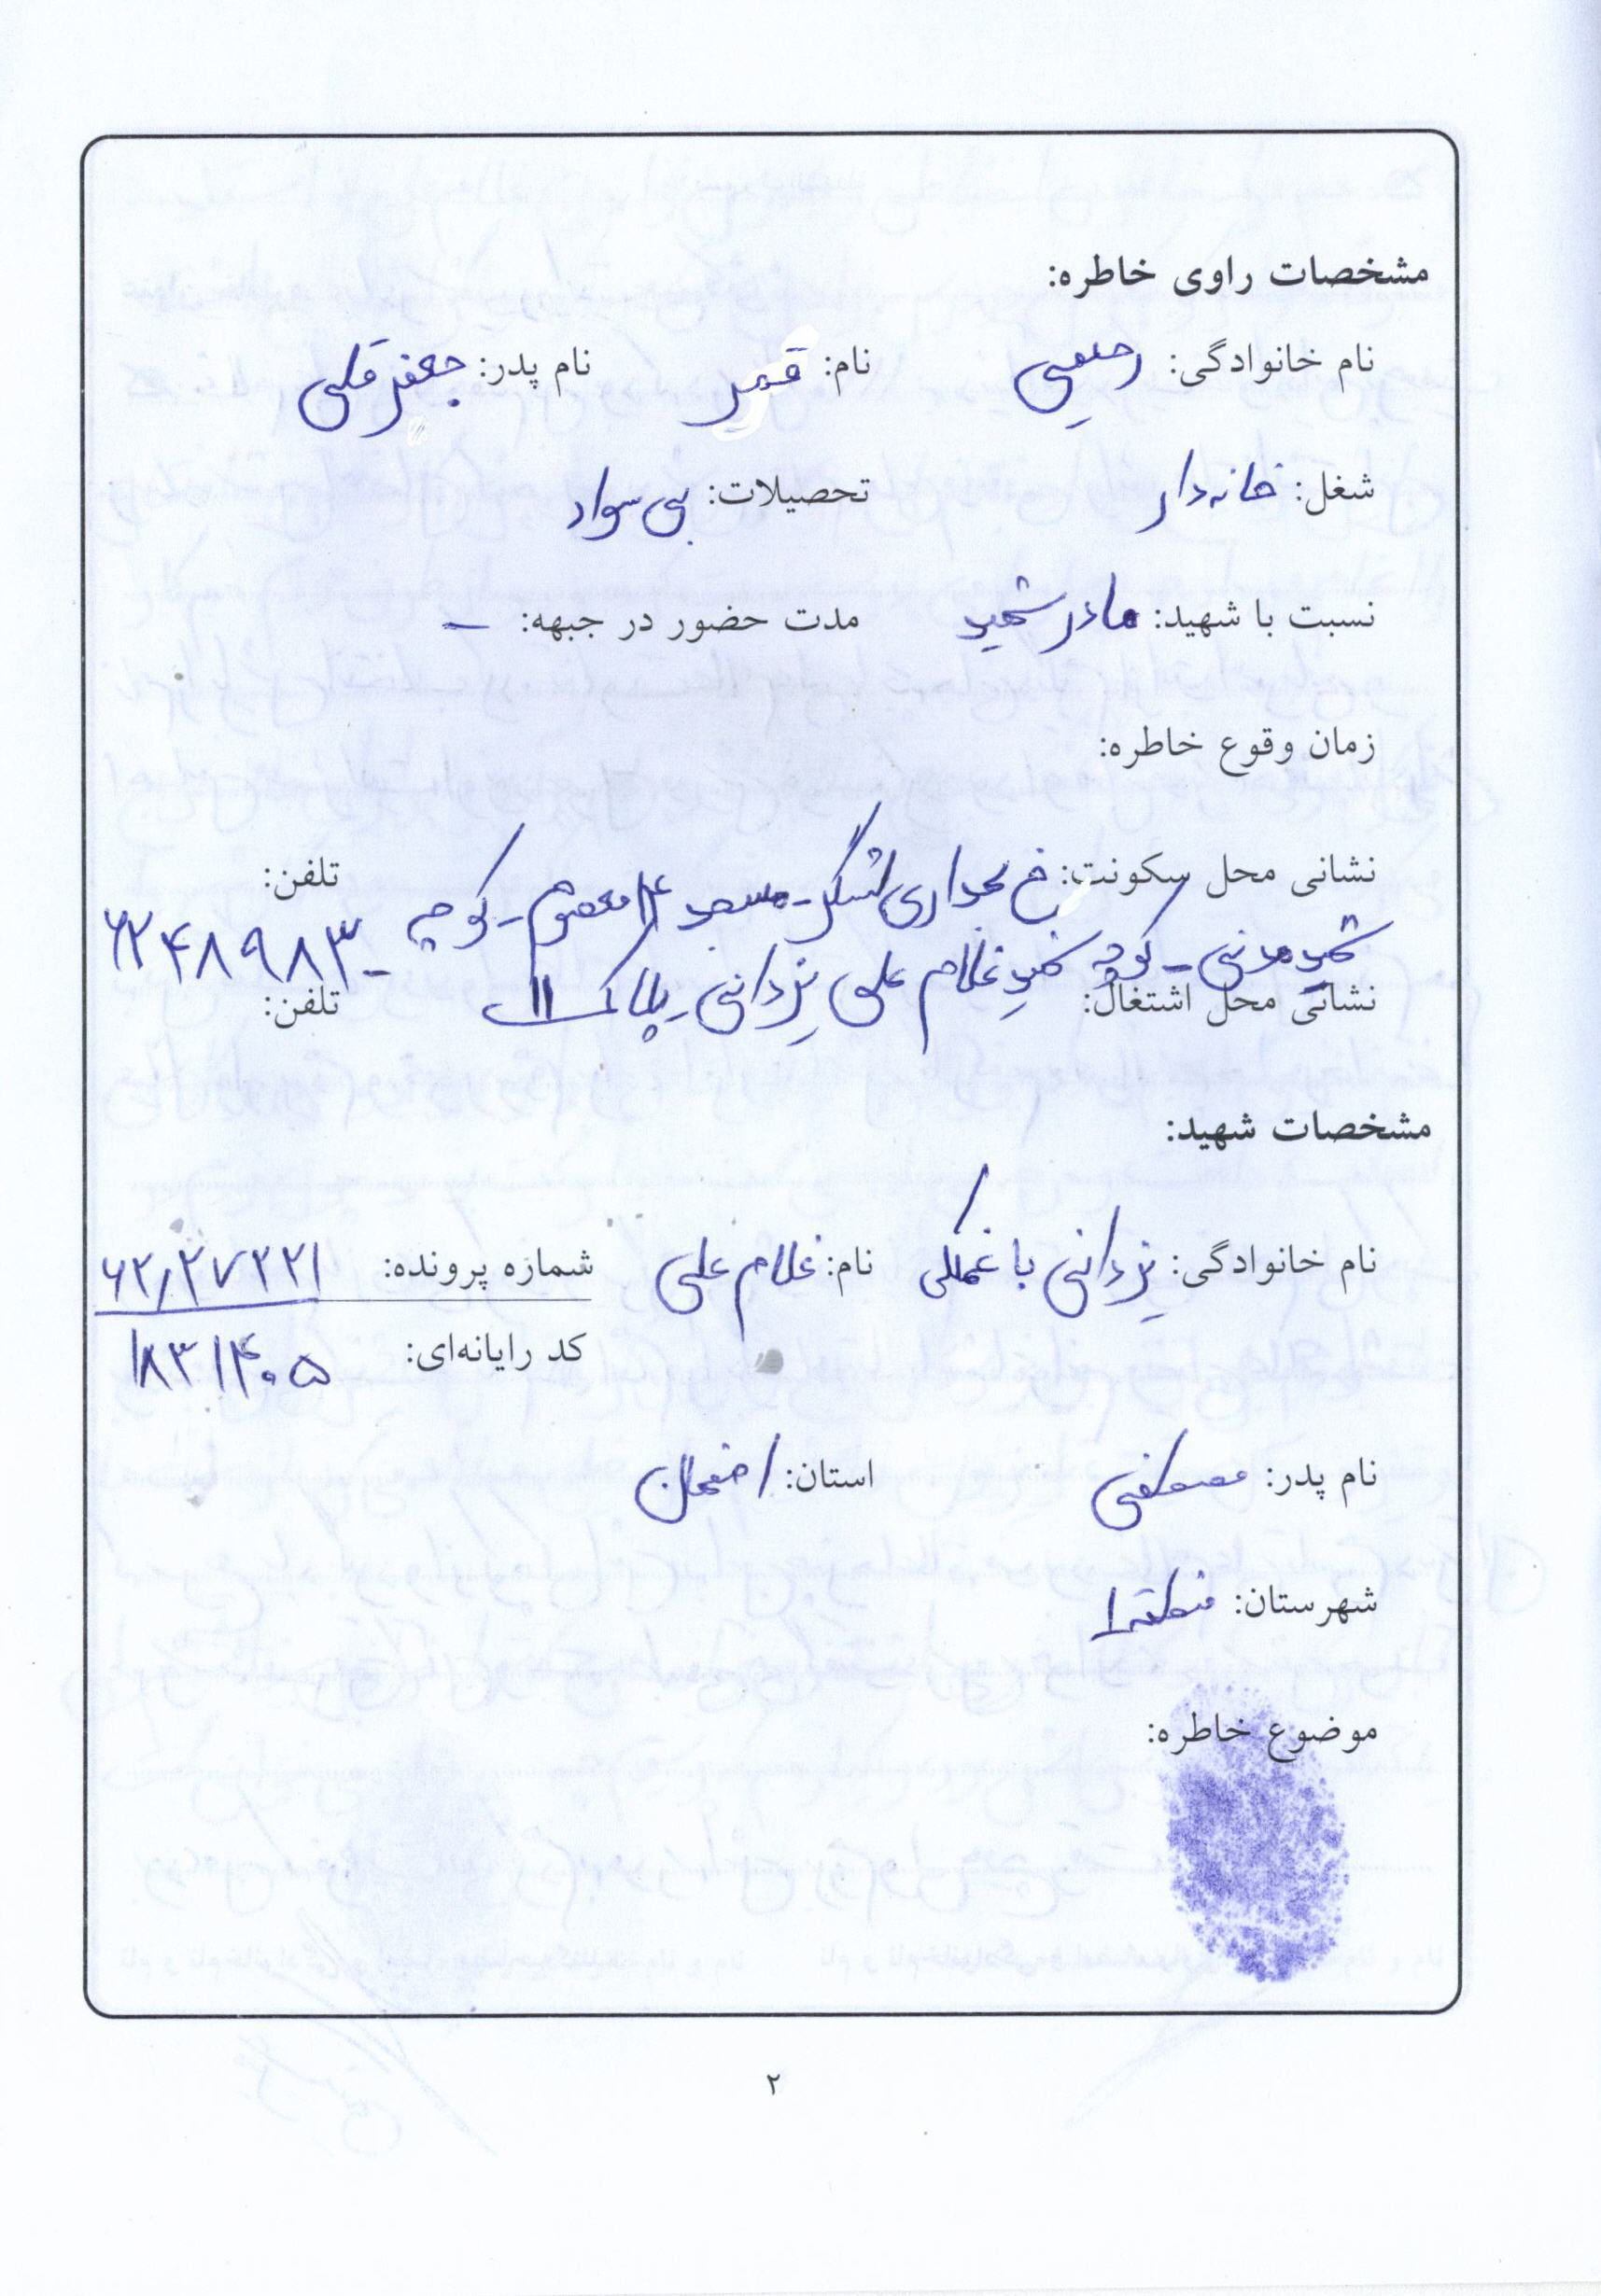 مشخصات راوی خاطره:
نام خانوادگی: رحیمی نام: قمر نام پدر: جعفرقلی
شغل: خانه‌دار تحصیلات: بی‌سواد
نسبت با شهید: مادر شهید مدت حضور در جبهه: -
زمان وقوع خاطره:
نشانی محل سکونت: خ نگهداری لشگر - مسجد ۱۴ معصوم - کوچه تلفن:
شهید مدنی - کوچه شهید غلام علی یزدانی - پلاک ۱۱ - ۶۲۴۸۹۸۳
نشانی محل اشتغال: تلفن:
مشخصات شهید:
نام خانوادگی: یزدانی باغملکی نام: غلام علی شماره پرونده: ۶۲,۲۷۲۲۱
کد رایانه‌ای: ۱۸۳۱۴۰۵
نام پدر: مصطفی استان: اصفهان
شهرستان: منطقه ۱
موضوع خاطره:
۲